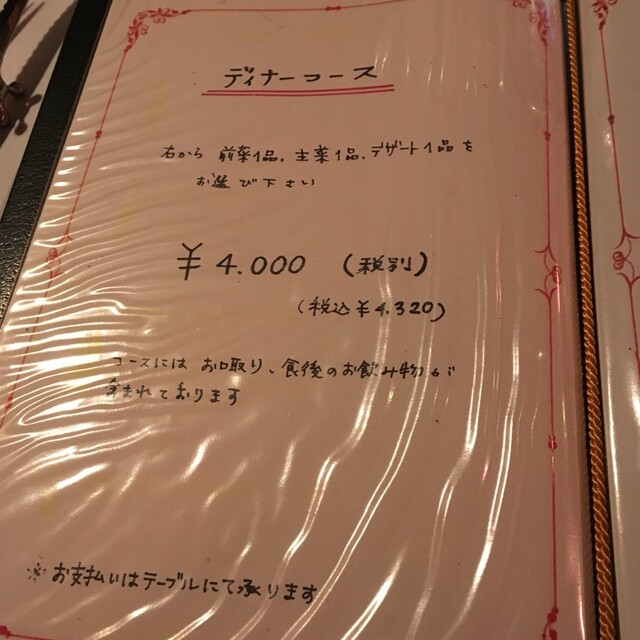 ディナーコース
右から 前菜1品、主菜1品、デザート1品を
お選び下さい
¥4.000 (税別)
(税込¥4.320)
コースには お口取り、食後のお飲み物が
含まれております
※お支払いはテーブルにて承ります